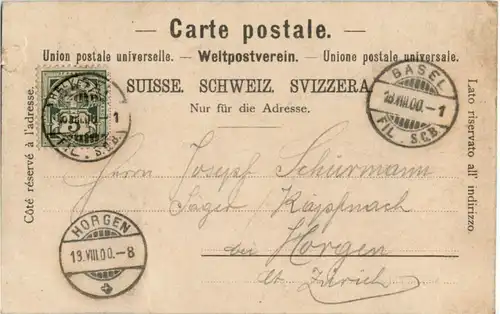 — Carte postale. —
Union postale universelle. — Weltpostverein. — Unione postale universale.
SUISSE. SCHWEIZ. SVIZZERA.
Nur für die Adresse.
Côté réservé à l'adresse.
Lato riservato all' indirizzo.
5
FIL. S.C.B.
BASEL
13.VIII.00.-1
FIL. S.C.B.
Herrn Josef Schürmann
Säger Käpfnach
bei Horgen
Ct. Zürich
HORGEN
13.VIII.00.-8